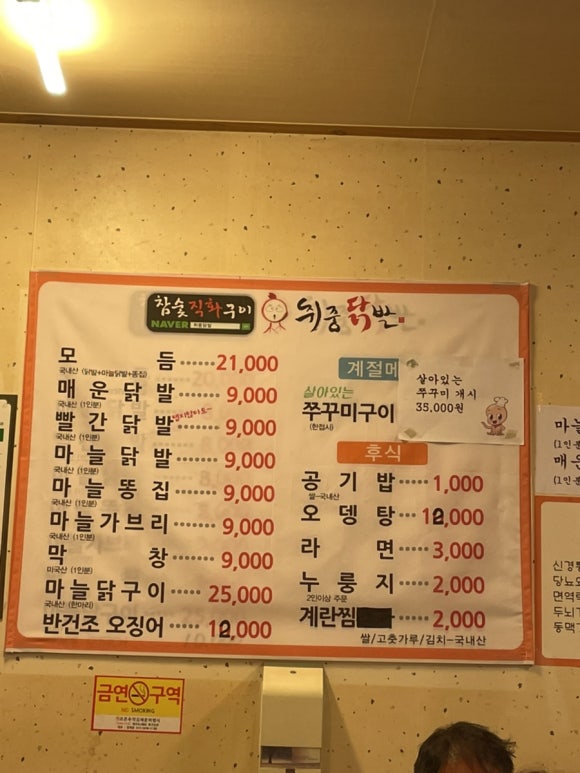 참숯직화구이
NAVER 뒤중닭발
뒤중닭발
모듬 ······ 21,000
국내산 (닭발+마늘닭발+똥집)
매운닭발 ······ 9,000
국내산 (1인분)
빨간닭발 ······ 9,000
국내산 (1인분)
마늘닭발 ······ 9,000
국내산 (1인분)
마늘똥집 ······ 9,000
국내산 (1인분)
마늘가브리 ······ 9,000
국내산 (1인분)
막창 ······ 9,000
미국산 (1인분)
마늘닭구이 ······ 25,000
국내산 (한마리)
반건조 오징어 ······ 12,000
계절메
살아있는
쭈꾸미구이
(한접시)
살아있는
쭈꾸미 개시
35,000원
후식
공기밥 ······ 1,000
쌀-국내산
오뎅탕 ······ 12,000
라면 ······ 3,000
누룽지 ······ 2,000
2인이상 주문
계란찜 ······ 2,000
쌀/고춧가루/김치-국내산
금연구역
NO SMOKING
마늘
(1인분
매운
(1인분
신경통
당뇨
면역력
두뇌
동맥